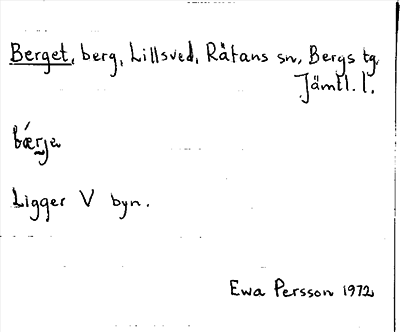 Berget, berg, Lillsved, Råtans sn, Bergs tg,
Jämtl. l.
bǽrjɐ
Ligger V byn.
Ewa Persson 1972